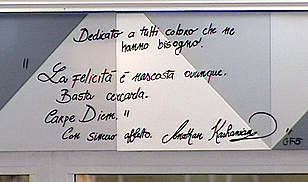 Dedicato a tutti coloro che ne
hanno bisogno.
"La felicità è nascosta ovunque.
Basta cercarla.
Carpe Diem."
Con sincero affetto. Jonathan Kashanian
GF5